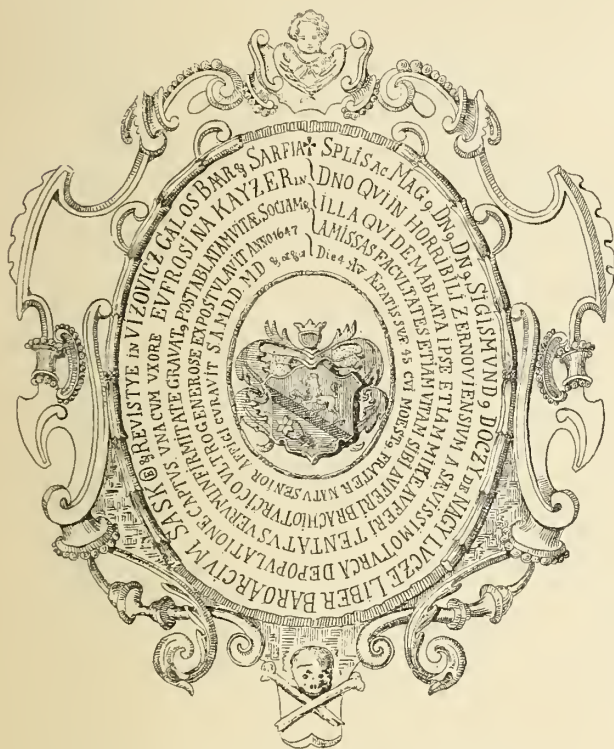 ✝ SPLIS AC MAG9 DN9 DN9 SIGISMVND9 DOCZY DE NAGY LVCZE LIBER BARO ARCIVM SASKŐ & REVISTYE IN VIZOVICZ GALOS BMAR& SARFIA
DNO QVI IN HORRIBILI ZERNOVIENSIVM A SÆVISSIMO TVRCA DEPOPVLATIONE CAPTVS VNA CVM VXORE EVFROSINA KAYZER IN
ILLA QVIDEM ABLATA IPE ETIAM MIRE AVFERI TENTATVS VERVM INFIRMITATE GRAVAT9 POST ABLATAM VITÆ SOCIAM &
AMISSAS FACVLTATES ETIAM VITAM SIBI AVFERI BRACHIO TVRCICO VLTRO GENEROSE EXPOSTVLAVIT ANNO 1647
Die 4 ÆTATIS SVÆ 45 CVI MOEST9 FRATER NATV SENIOR AFFIGI CVRAVIT